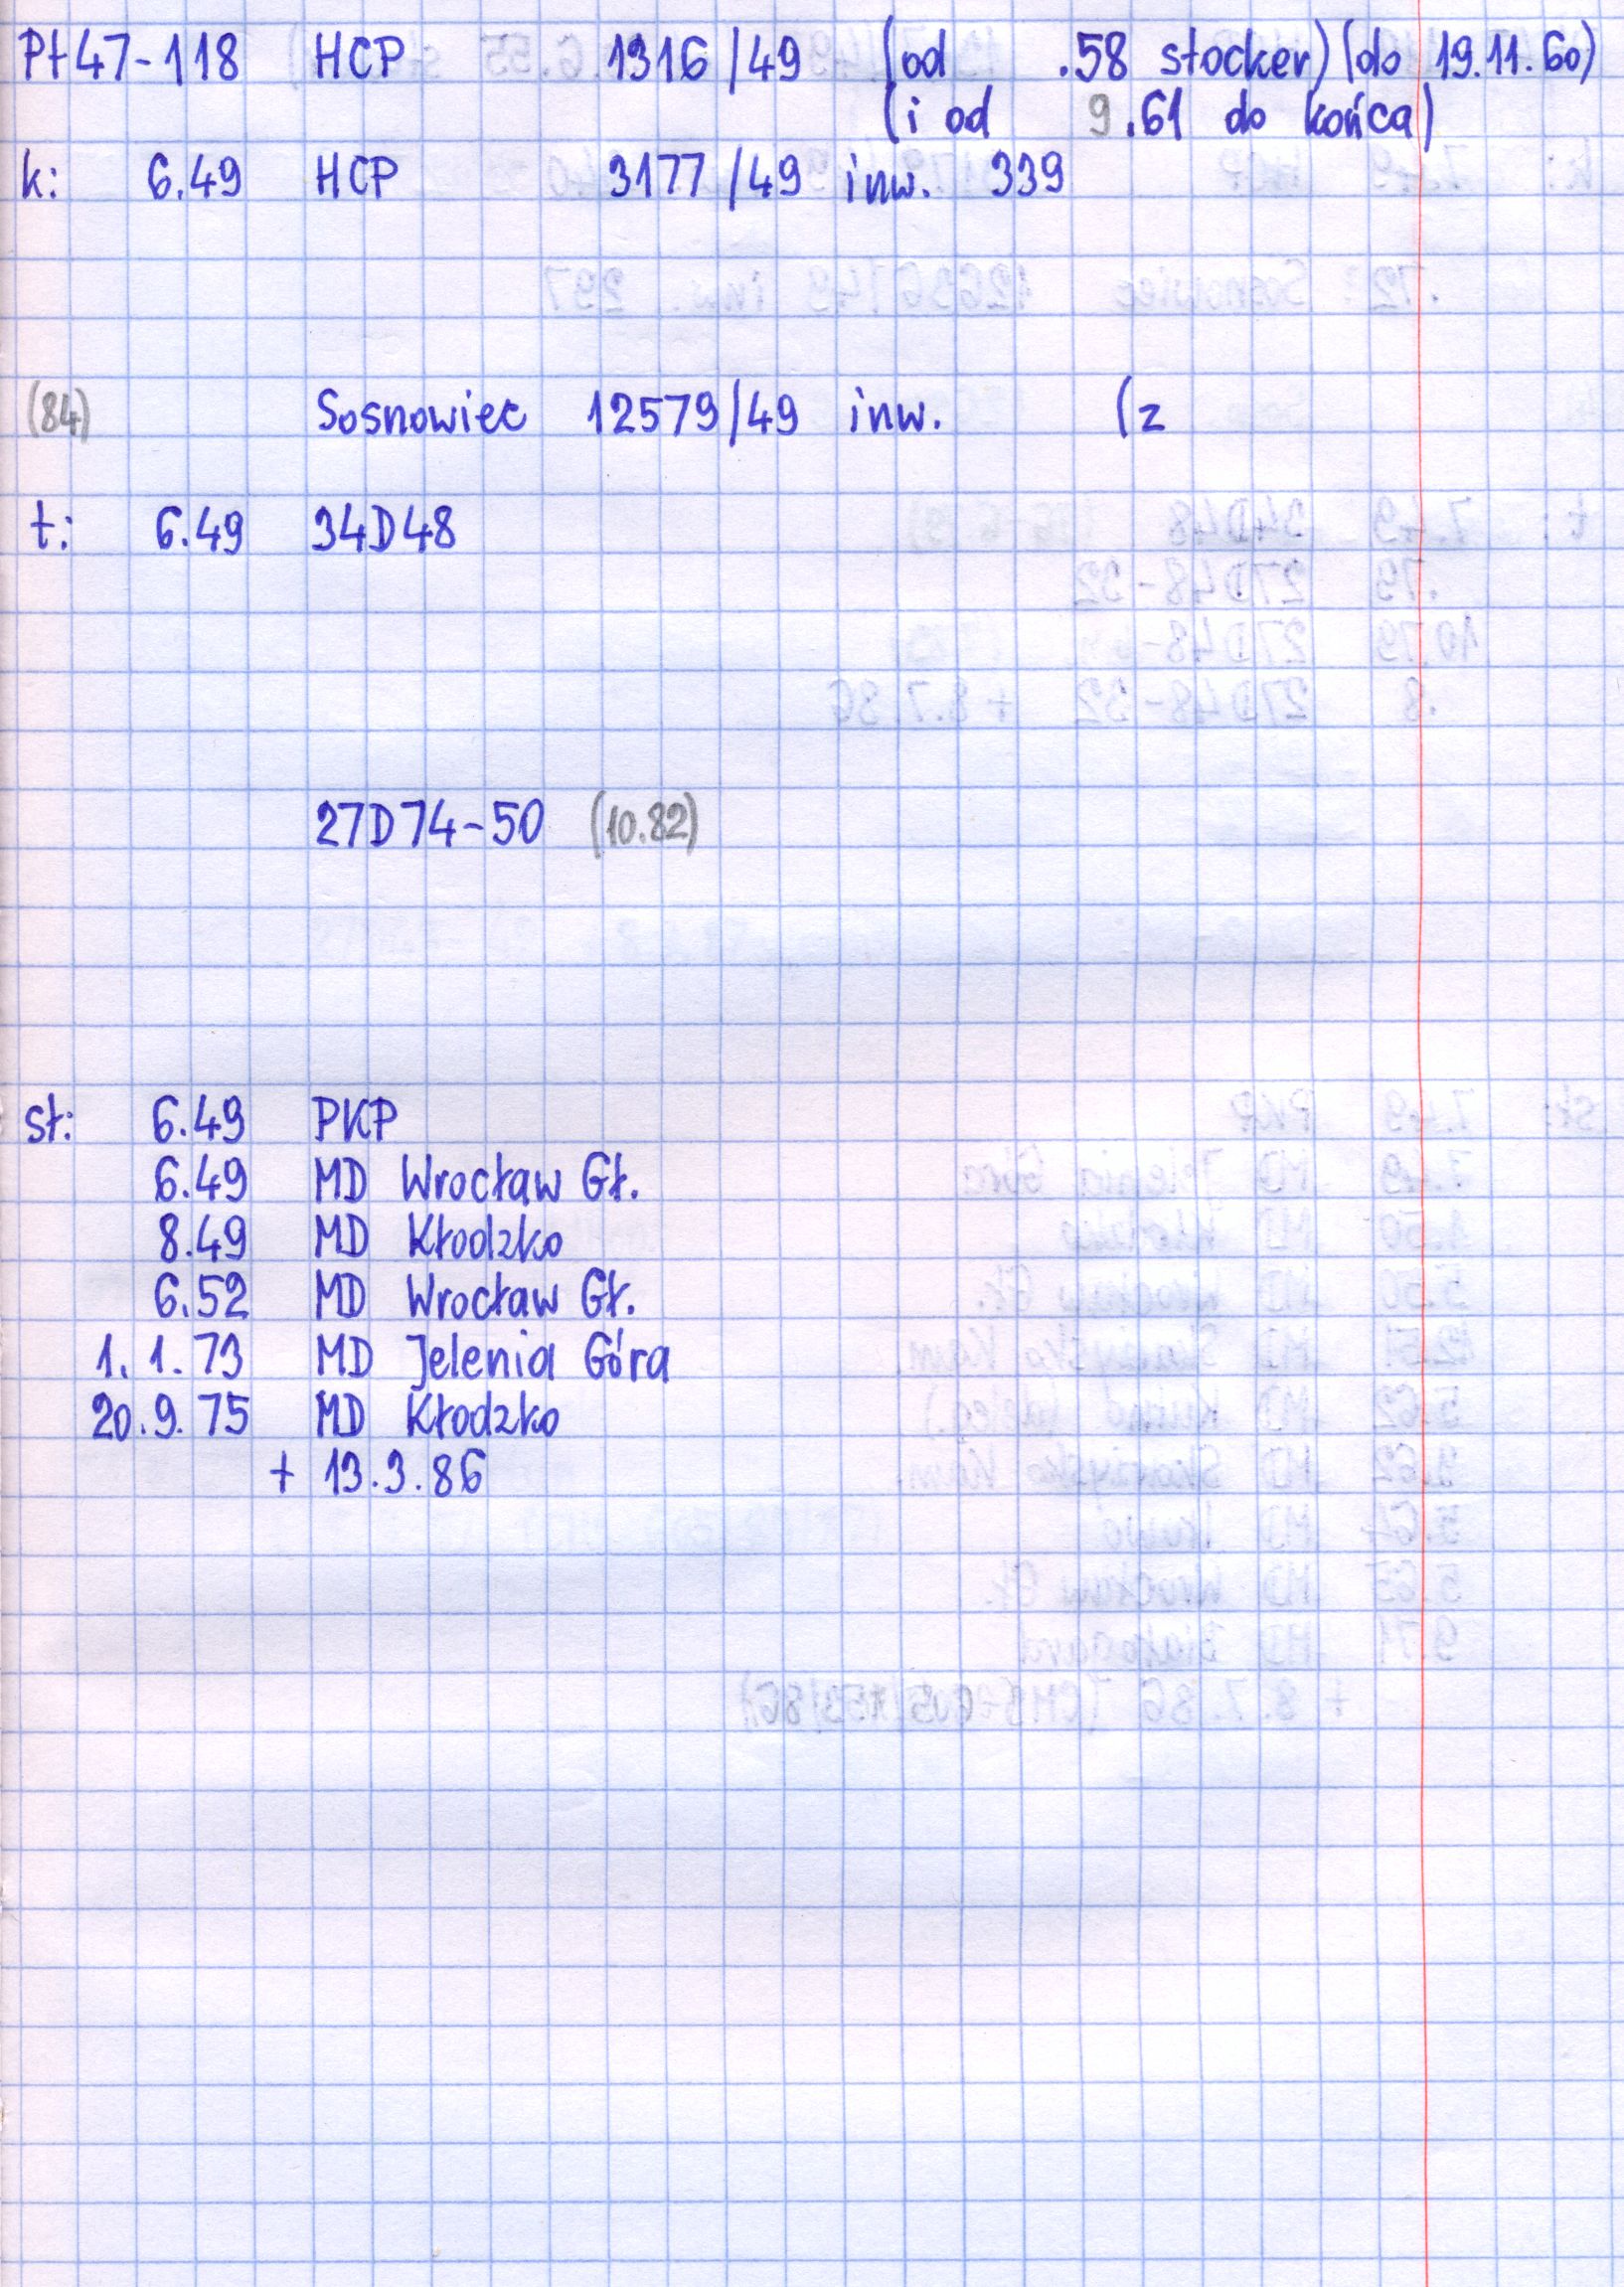 Pt47-118 HCP 1316/49 (od .58 stocker) (do 19.11.60)
(i od 9.61 do końca)
k: 6.49 HCP 3177/49 inw. 339
(84) Sosnowiec 12579/49 inw. (z
t: 6.49 34D48
27D74-50 (10.82)
st: 6.49 PKP
6.49 MD Wrocław Gł.
8.49 MD Kłodzko
6.52 MD Wrocław Gł.
1.1.73 MD Jelenia Góra
20.9.75 MD Kłodzko
+ 13.3.86